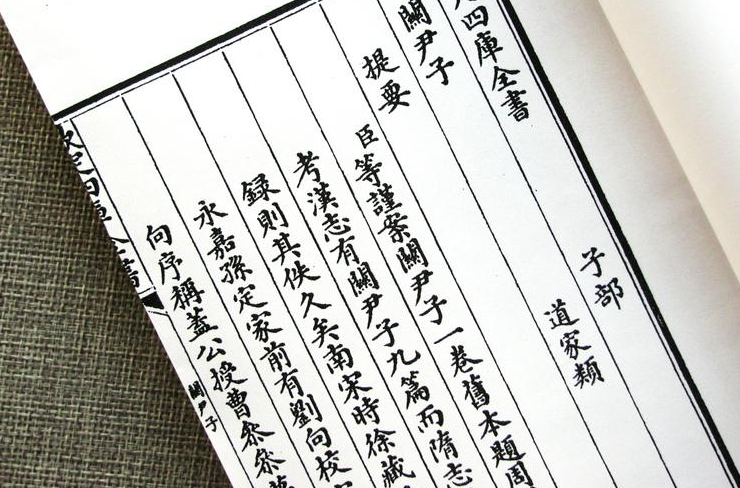 四庫全書
子部
關尹子
道家類
提要
臣等謹案關尹子一卷舊本題周
考漢志有關尹子九篇而隋志
録則其佚久矣南宋時徐藏
永嘉孫定家前有劉向校
向序稱蓋公授曹參參
欽定四庫全書
關尹子